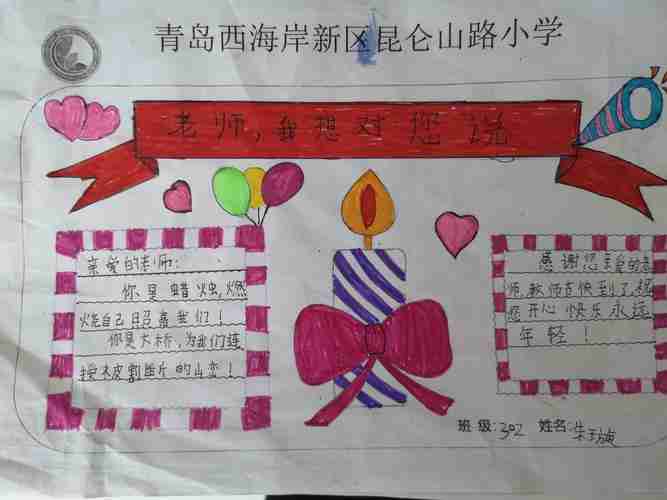 青岛西海岸新区昆仑山路小学
老师，我想对您说
亲爱的老师：
你是蜡烛，燃
烧自己照着我们！
你是大桥，为我们连
接被割断的山峦！
感谢您亲爱的老
师，教师节快到了，祝
您开心快乐永远
年轻！
班级：302 姓名：朱玉